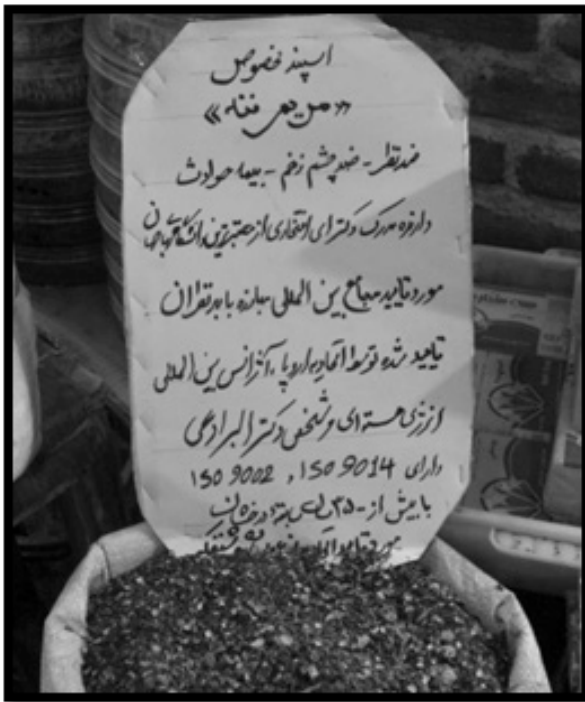 اسپند مخصوص
«مریم ننه»
ضد نظر - ضد چشم زخم - بیمه حوادث
دارنده مدرک دکترای افتخاری از معتبرترین دانشگاههای جهان
مورد تایید مجامع بین المللی مبارزه با بد نظران
تایید شده توسط اتحادیه اروپا، آژانس بین المللی
انرژی هسته ای و شخص دکتر البرادعی
دارای ISO 9002 , ISO 9014
با بیش از ۳۵۰ سابقه درخشان
مورد تایید